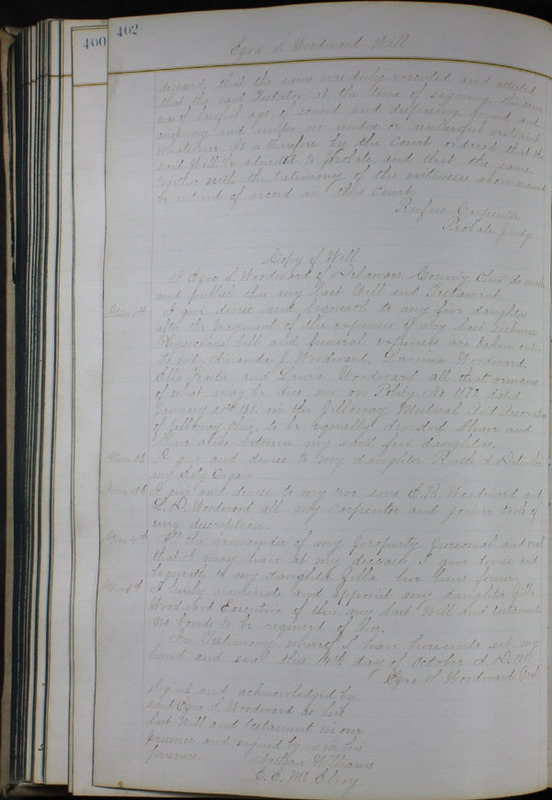 400
402
Ezra S Woodward Will
deceased, that the same was duly executed and attested
that the said Testator at the time of signing the same
was of lawful age, of sound and disposing mind and
memory and under no undue or unlawful restraint
whatever. It is therefore by the Court ordered that the
said Will be admitted to probate, and that the same
together with the testimony of the witnesses above named
be entered of record in this Court
Rufus Carpenter
Probate Judge
Copy of Will
I Ezra S Woodward of Delaware County Ohio do make
and publish this my last Will and Testament
Item 1st I give devise and bequeath to my four daughters
after the payment of the expenses of my last sickness
Physicians bill and funeral expenses are taken out
To wit: Amanda J Woodward, Woodward,
and Laura Woodward all that remains
of what may be due me on Policy No 1172 dated
January 21st in the Mutual Aid Association
of Ohio, to be equally divided Share and
Share alike between my said four daughters.
Item 2d I give and devise to my daughter
my Organ
Item 3d I give and devise to my two sons E. B. Woodward and
L. D. Woodward all my carpenter and joiner tools of
every description.
Item 4th All the remainder of my property personal and real
that I may have at my decease, I give devise and
bequeath to my daughter Zilla her heirs forever.
Item 5th I hereby nominate and appoint my daughter Zilla
Woodward Executrix of this my last Will and testament
no bonds to be required of her.
In Testimony whereof I have hereunto set my
hand and seal this 14th day of October A.D.
Ezra S. Woodward (seal)
Signed and acknowledged by
said Ezra S Woodward as his
last Will and testament in our
presence and signed by us in his
presence
Nathan Williams
E. E. Mc Elroy